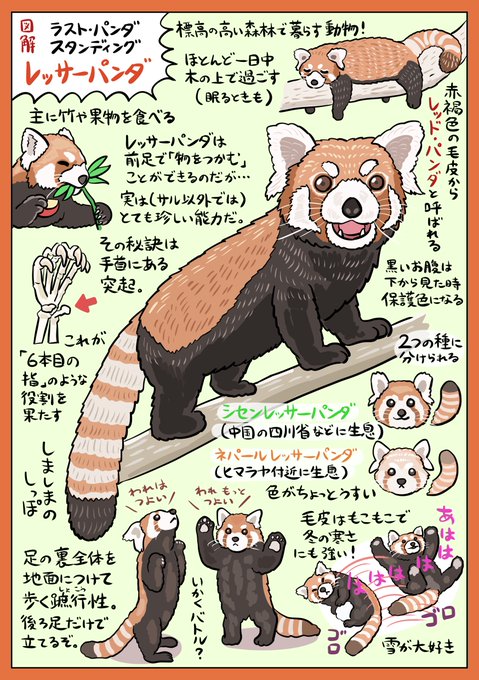 図解
ラスト・パンダ
スタンディング
レッサーパンダ
標高の高い森林で暮らす動物!
ほとんど一日中
木の上で過ごす
(眠るときも)
赤褐色の毛皮から
レッド・パンダと呼ばれる
主に竹や果物を食べる
レッサーパンダは
前足で「物をつかむ」
ことができるのだが…
実は(サル以外では)
とても珍しい能力だ。
その秘訣は
手首にある
突起。
これが
「6本目の
指」のような
役割を
果たす
黒いお腹は
下から見た時
保護色になる
2つの種に
分けられる
シセンレッサーパンダ
(中国の四川省などに生息)
ネパールレッサーパンダ
(ヒマラヤ付近に生息)
色がちょっとうすい
しましまの
しっぽ
われは
つよい
われもっと
つよい
いかくバトル?
足の裏全体を
地面につけて
歩く蹠行性。
しょこう
後ろ足だけで
立てるぞ。
毛皮はもこもこで
冬の寒さ
にも強い!
あはは
はははは
ゴロ
ゴロ
雪が大好き